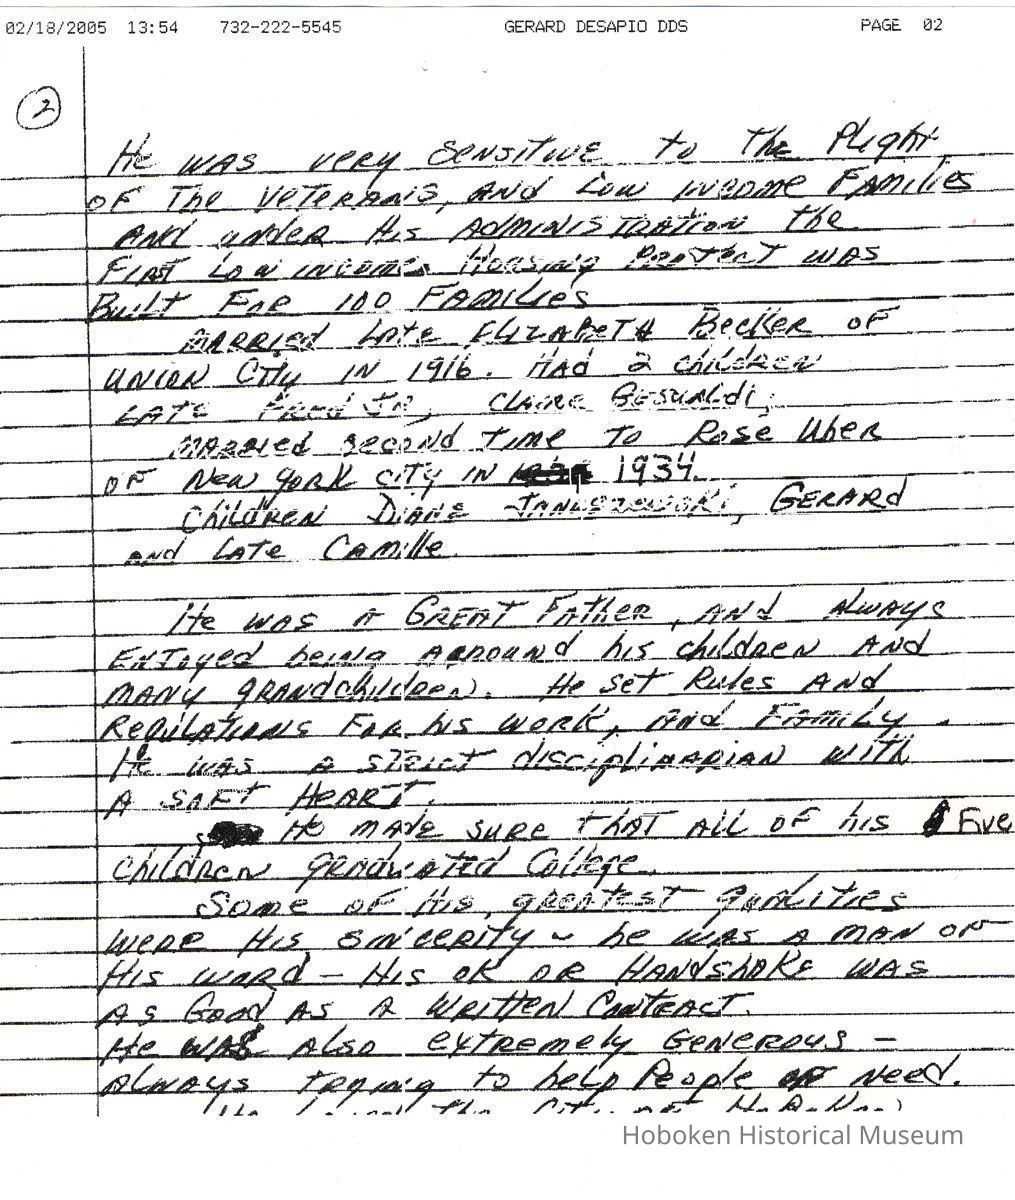 02/18/2005 13:54 732-222-5545 GERARD DESAPIO DDS PAGE 02
2
He was very sensitive to the Plight
of the Veterans, and Low income Families
and under His Administration the
First Low income Housing Project was
Built For 100 Families
Married Late Elizabeth Becker of
Union City in 1916. Had 2 children
Late Fred Jr, Claire Gesualdi,
Married second time to Rose Uber
of New York City in 1934.
Children Diane Gerard
and Late Camille
He was a Great Father, and Always
Enjoyed being arround his children and
many grandchildren. He set Rules and
Regulations For his work, and Family.
He was a strict disciplinarian with
A Soft Heart.
He made sure that all of his Five
children graduated College.
Some of His greatest qualities
were His sincerity ~ he was a man of
His word – His ok or Handshake was
As Good as a Written Contract.
He was also extremely Generous –
Always trying to help People of need.
He Loved The City of Hoboken
Hoboken Historical Museum